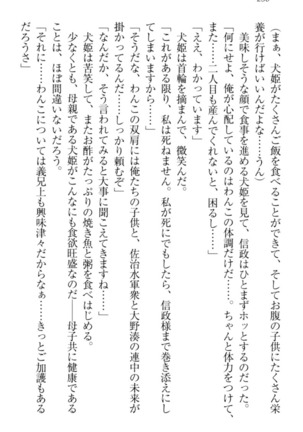 (まぁ、犬姫がたくさんご飯を食べることができて、そしてお腹の子供にたくさん栄
養が行けばいいんだよな……うん)
美味しそうな顔で食事を進める犬姫を見て、信政はひとまずホッとするのだった。
「何にせよ、俺が心配しているのはわんこの体調だけだ……。ちゃんと体力をつけて、
また……二人目も産んでくれないと、困るし……」
「ええ、わかっています」
犬姫は首輪を摘まんで、微笑んだ。
「これがある限り、私は死ねません。私が死にでもしたら、信政様まで巻き添えにし
てしまいますから……」
「なんだか、そう言われてみると大事に聞こえてきますね……」
掛かってるんだ……しっかり頼むぞ」
「そうだな、わんこの双肩には俺たちの子供と、佐治水軍衆と大野湊の連中の未来が
犬姫は苦笑して、またお酢がたっぷりの焼き魚と粥を食べはじめる。
少なくとも、母親である犬姫がこんなにも食欲旺盛なのだ――母子共に健康である
ことは、ほぼ間違いないだろう。
「それに……わんこについては義兄上も興味津々だからなぁ……きっとご加護もある
だろうさ」